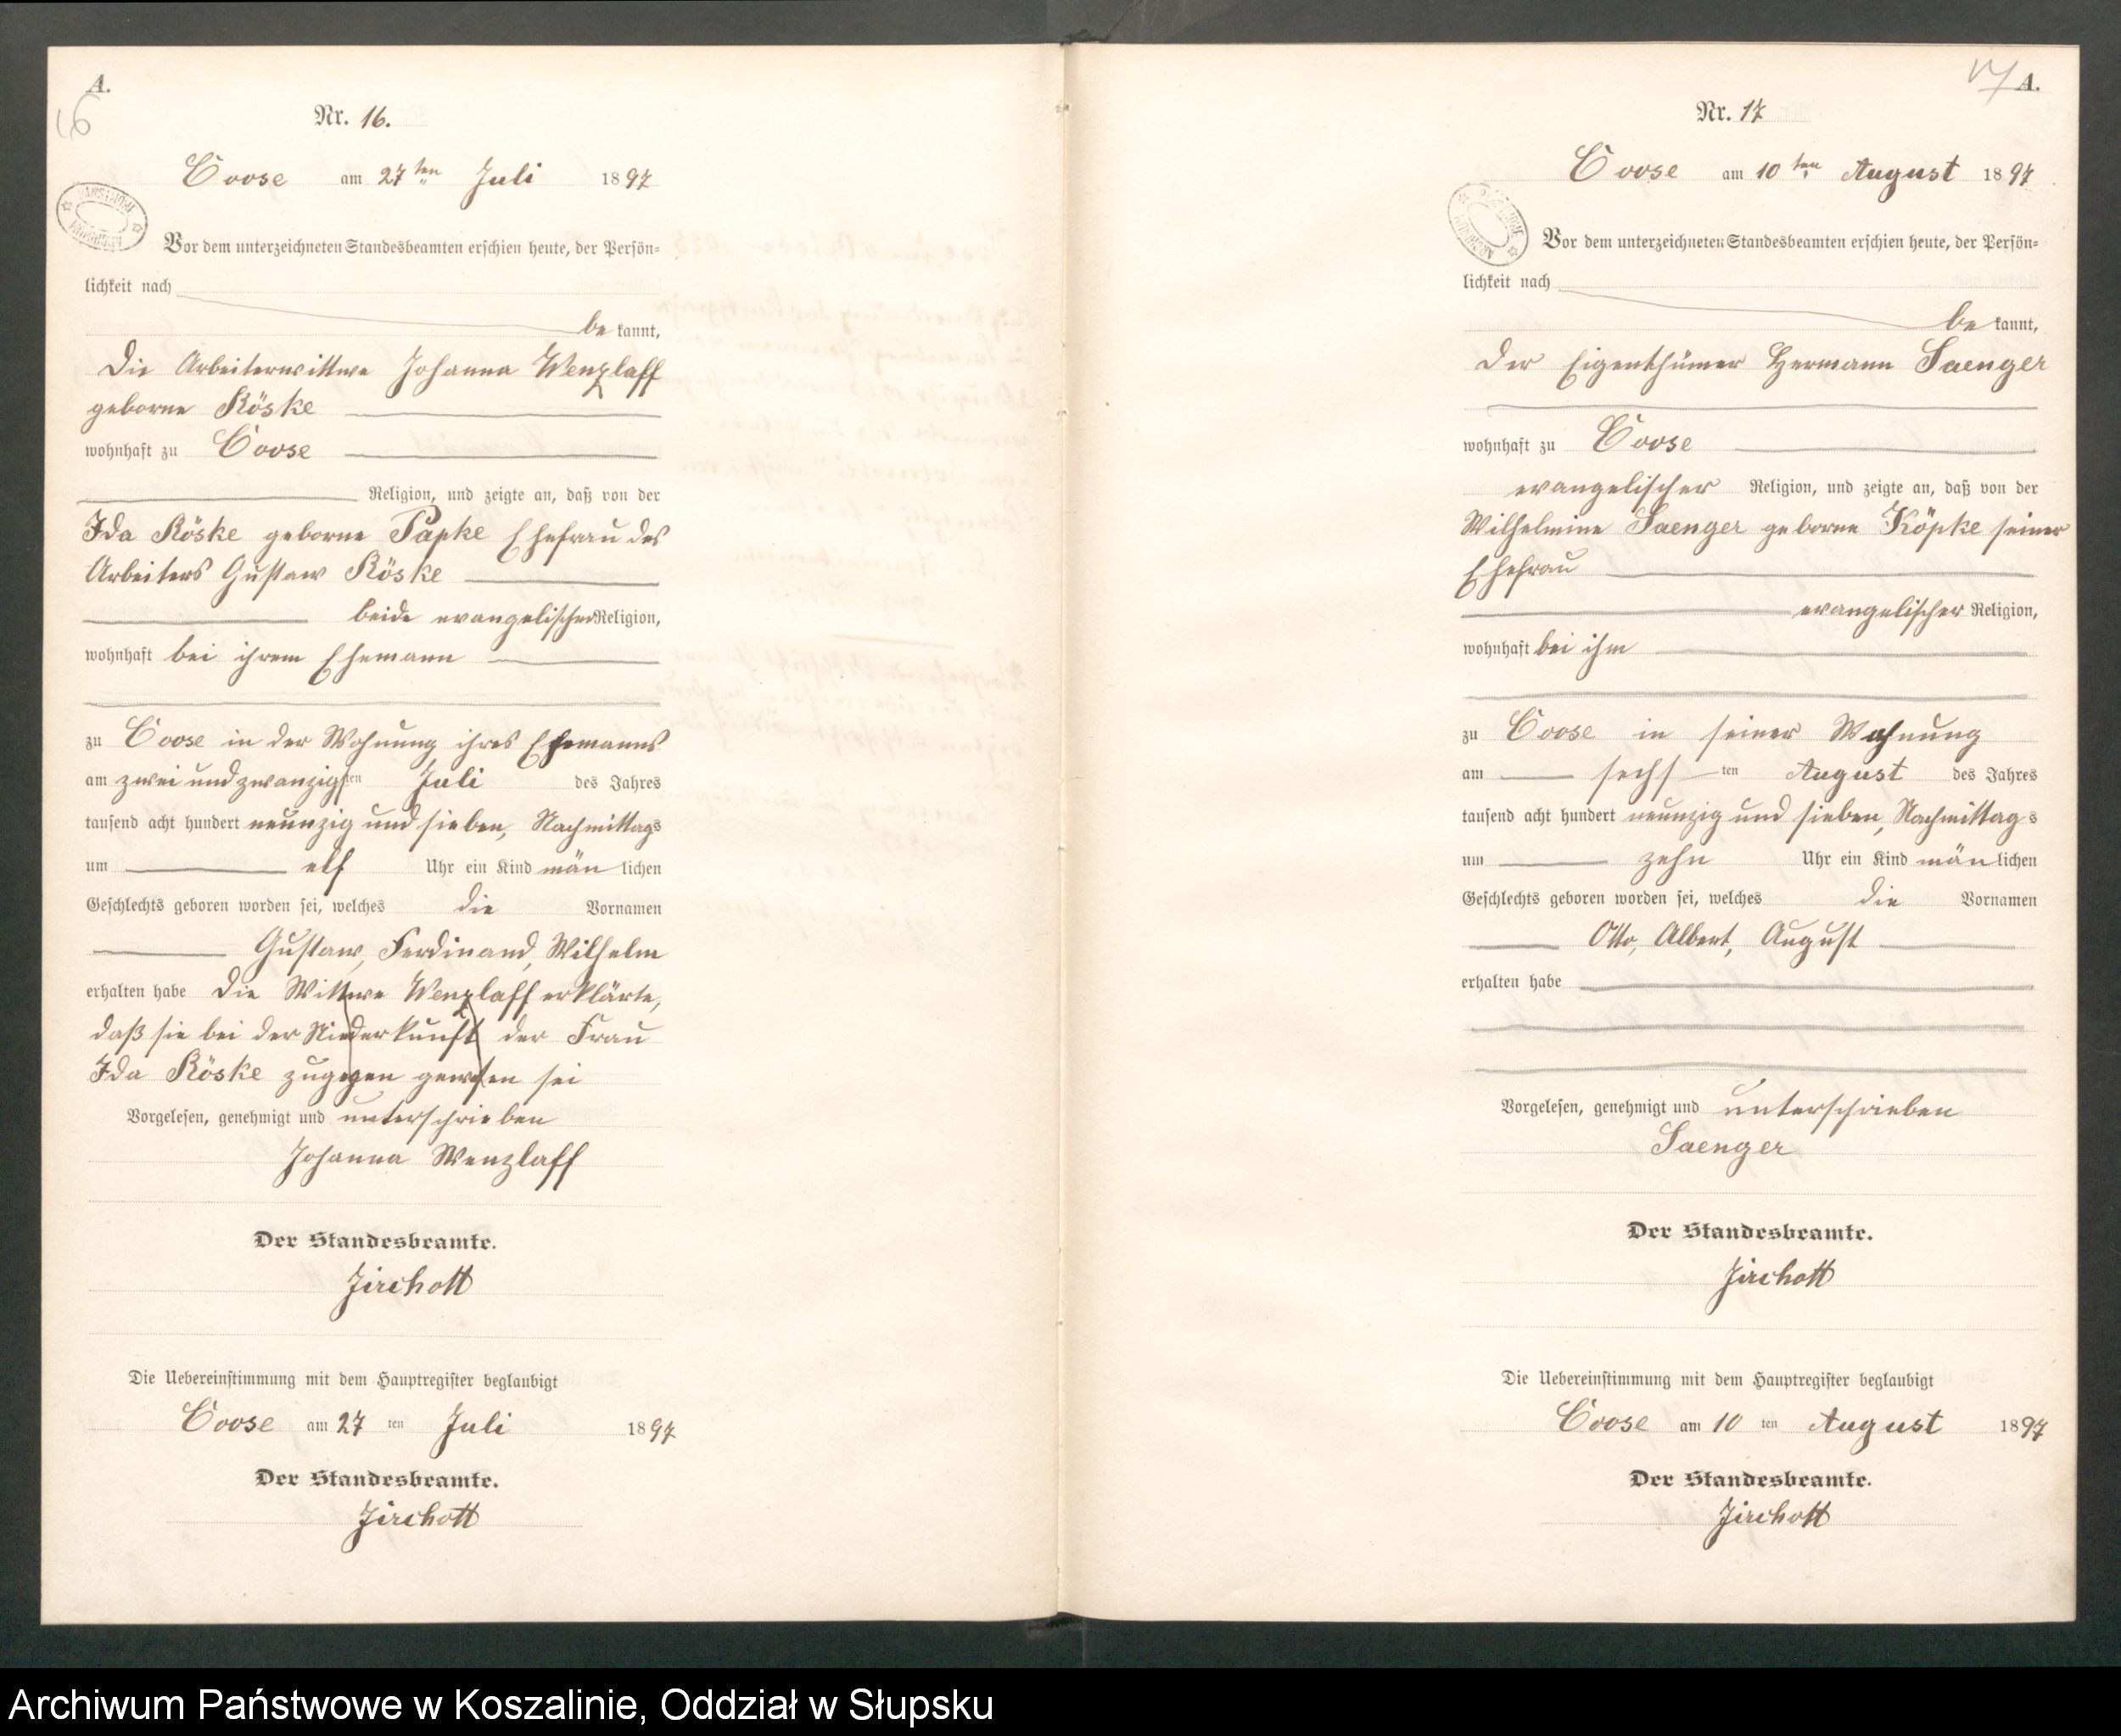 A.
16
Nr. 16.
Coose am 27ten Juli 1897
Vor dem unterzeichneten Standesbeamten erschien heute, der Persön=
lichkeit nach
be kannt,
die Arbeiterwittwe Johanna Wenzlaff
geborne Röske
wohnhaft zu Coose
Religion, und zeigte an, daß von der
Ida Röske geborne Papke Ehefrau des
Arbeiters Gustaw Röske
beide evangelischer Religion,
wohnhaft bei ihrem Ehemann
zu Coose in der Wohnung ihres Ehemanns
am zwei und zwanzigsten Juli des Jahres
tausend acht hundert neunzig und sieben, Nachmittags
um elf Uhr ein Kind män lichen
Geschlechts geboren worden sei, welches die Vornamen
Gustaw, Ferdinand, Wilhelm
erhalten habe die Wittwe Wenzlaff erklärte,
daß sie bei der Niederkunft der Frau
Ida Röske zugegen gewesen sei
Vorgelesen, genehmigt und unterschrieben
Johanna Wenzlaff
Der Standesbeamte.
Zirchott
Die Uebereinstimmung mit dem Hauptregister beglaubigt
Coose am 27 ten Juli 1897
Der Standesbeamte.
Zirchott
17 A.
Nr. 17
Coose am 10ten August 1897
Vor dem unterzeichneten Standesbeamten erschien heute, der Persön=
lichkeit nach
be kannt,
der Eigenthümer Hermann Saenger
wohnhaft zu Coose
evangelischer Religion, und zeigte an, daß von der
Wilhelmine Saenger geborne Köpke seiner
Ehefrau
evangelischer Religion,
wohnhaft bei ihm
zu Coose in seiner Wohnung
am sechs ten August des Jahres
tausend acht hundert neunzig und sieben, Nachmittag s
um zehn Uhr ein Kind män lichen
Geschlechts geboren worden sei, welches die Vornamen
Otto, Albert, August
erhalten habe
Vorgelesen, genehmigt und unterschrieben
Saenger
Der Standesbeamte.
Zirchott
Die Uebereinstimmung mit dem Hauptregister beglaubigt
Coose am 10 ten August 1897
Der Standesbeamte.
Zirchott
Archiwum Państwowe w Koszalinie, Oddział w Słupsku